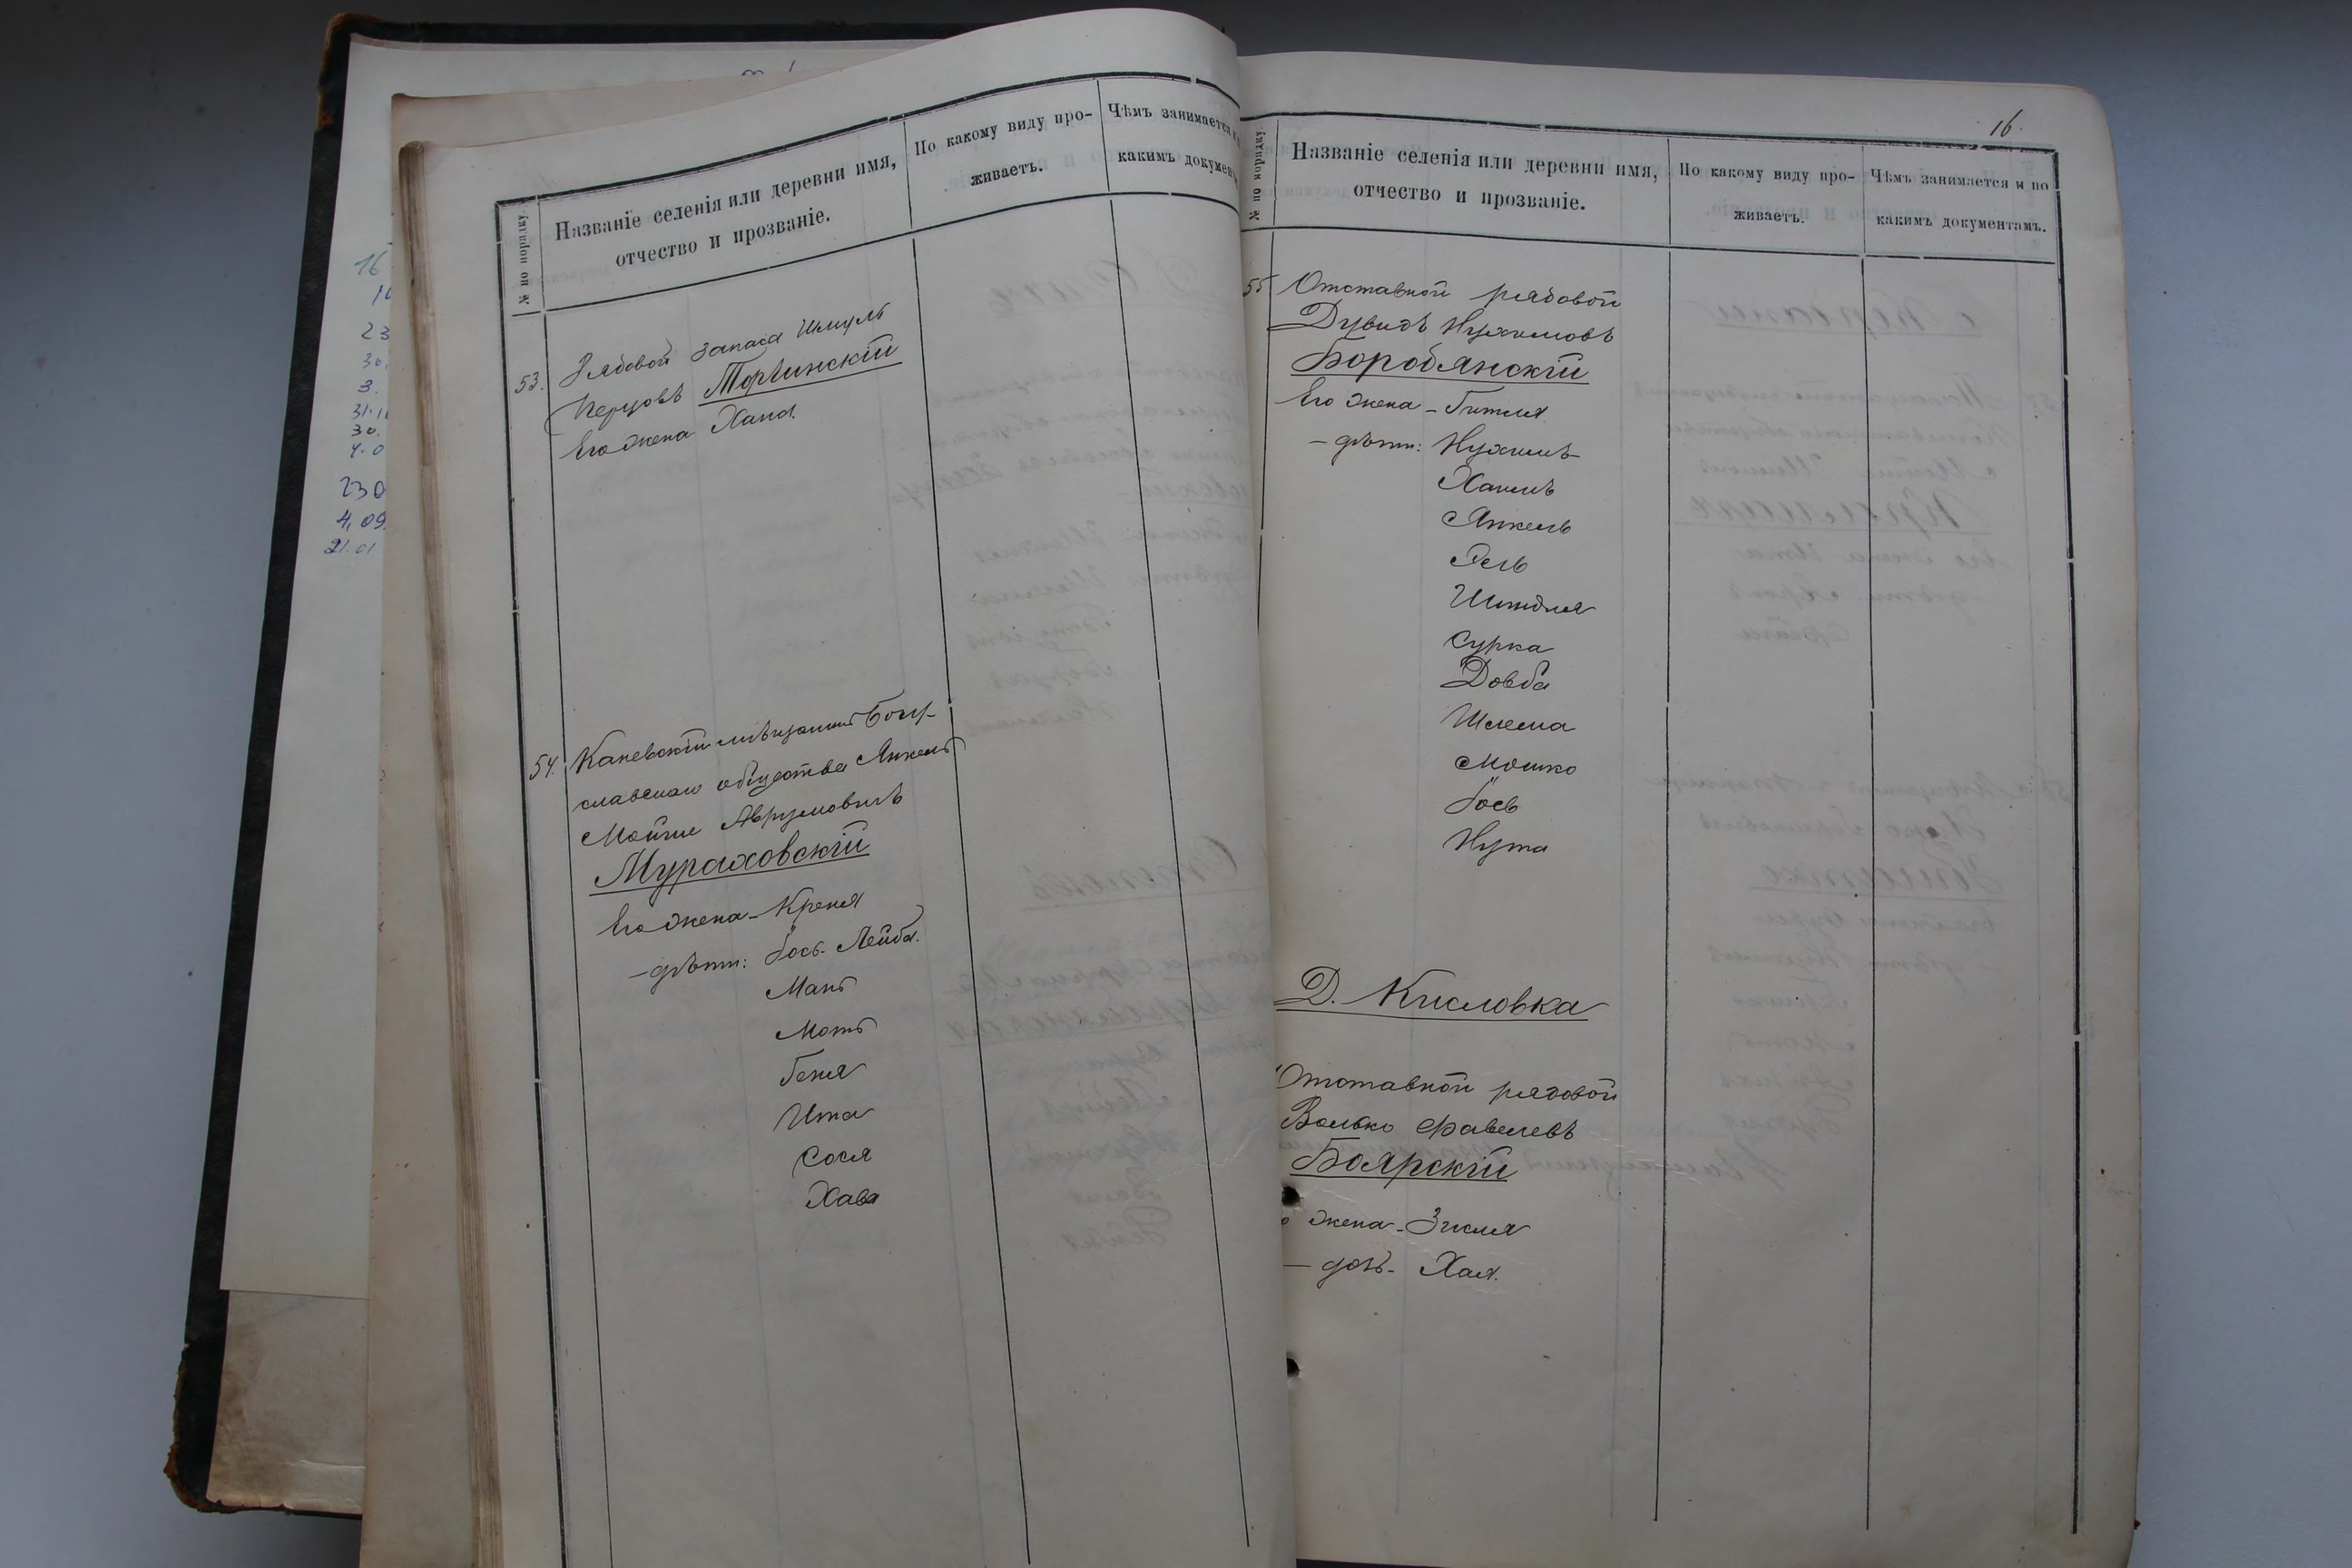 16
10
23
30.
3.
31.1
30.
4.0
230
4,09.
21.01
№ по порядку.
Названіе селенія или деревни имя,
отчество и прозваніе.
По какому виду про-
живаетъ.
Чѣмъ занимается и
какимъ докумен
53. Рядовой запаса Шмуль
Перцовъ
Его жена Хана.
54. Каневскій мѣщанинъ Богу-
славскаго общества Янкель
Мойше Аврумовичъ
Мураховскій
Его жена - Креня
- дѣти: Іось-Лейба.
Мань
Моть
Геня
Ита
Сося
Хава
16.
№ по порядку.
Названіе селенія или деревни имя,
отчество и прозваніе.
По какому виду про-
живаетъ.
Чѣмъ занимается и по
какимъ документамъ.
55 Отставной рядовой
Дувидъ Нухимовъ
Бородянскій
Его жена - Гитля
- дѣти: Нухимъ
Хаимъ
Янкель
Рель
Шейндля
Сурка
Довба
Шлема
Мошко
Іось
Нута
Д. Кисловка
Отставной рядовой
Волько Фавелевъ
Боярскій
о жена - Зисля
- дочь - Хая.